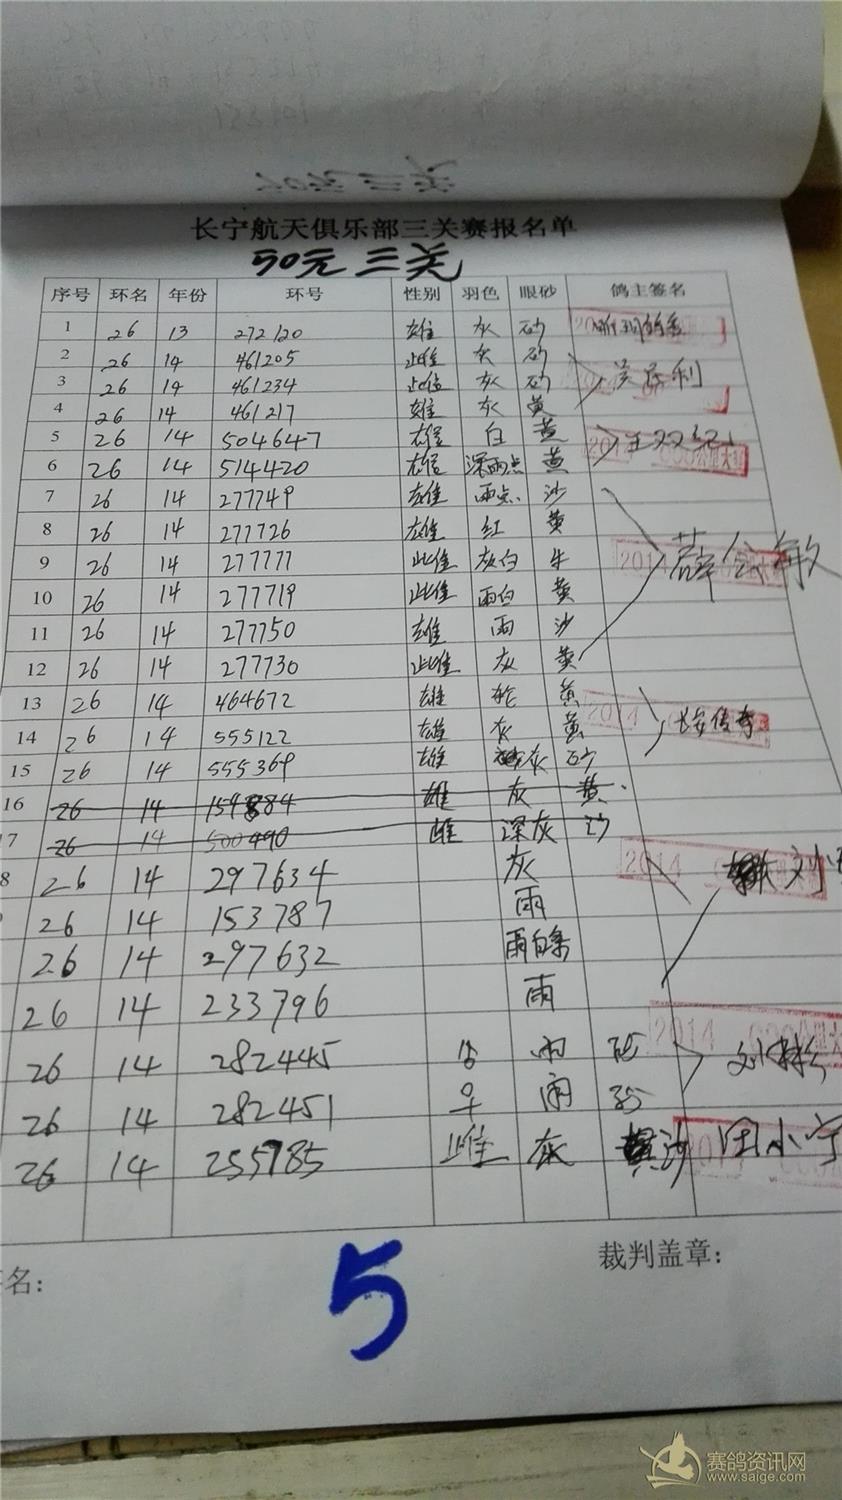 长宁航天俱乐部三关赛报名单
50元三关
序号 环名 年份 环号 性别 羽色 眼砂 鸽主签名
1 26 13 272120 雄 灰 砂
2 26 14 461205 雌 灰 砂
3 26 14 461234 雌 灰 砂
4 26 14 461217 雄 灰 黄
5 26 14 504647 雄 白 黄
6 26 14 514420 雄 深雨点 黄
7 26 14 277749 雄 雨点 沙
8 26 14 277726 雄 红 黄
9 26 14 277777 雌 灰白 牛
10 26 14 277719 雌 雨白 黄
11 26 14 277750 雄 雨 沙
12 26 14 277730 雌 灰 黄
13 26 14 464672 雄 黄
14 26 14 555122 雄 灰 黄
15 26 14 555369 雄 灰 砂
16 26 14 159884 雄 灰 黄
17 26 14 500490 雌 深灰 沙
8 26 14 297634 灰 刘小
26 14 153787 雨
26 14 297632 雨白条
26 14 233796 雨
26 14 282445 雨 砂 刘
26 14 282451 雨 砂
26 14 255785 雌 灰 黄沙 田小宁
2014
名： 裁判盖章：
5
赛鸽资讯网
www.saige.com